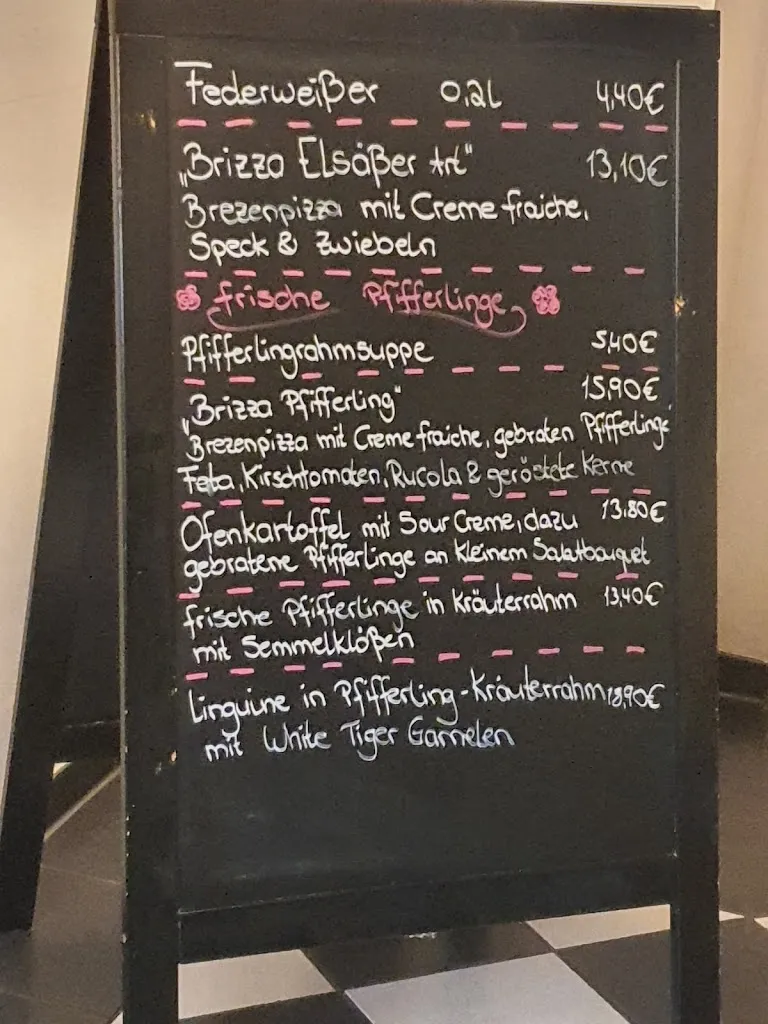 Federweißer 0,2l 4,40€
„Brizza Elsäßer Art" 13,10€
Brezenpizza mit Creme fraiche,
Speck & Zwiebeln
frische Pfifferlinge
Pfifferlingrahmsuppe 5,40€
„Brizza Pfifferling" 15,90€
Brezenpizza mit Creme fraiche, gebraten Pfifferlinge
Feta, Kirschtomaten, Rucola & geröstete Kerne
Ofenkartoffel mit Sour Creme, dazu 13,80€
gebratene Pfifferlinge an kleinem Salatbouquet
frische Pfifferlinge in Kräuterrahm 13,40€
mit Semmelklößen
Linguine in Pfifferling-Kräuterrahm 18,90€
mit White Tiger Garnelen